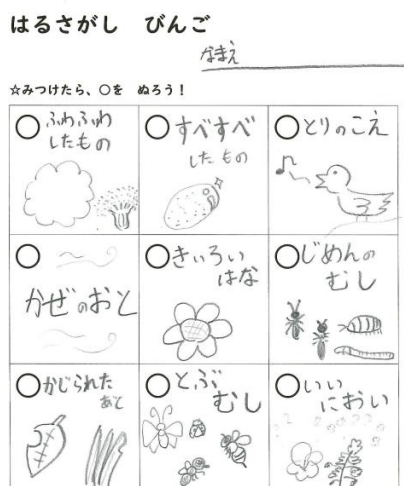 はるさがし　びんご
なまえ
☆みつけたら、○を　ぬろう！
ふわふわ
したもの
すべすべ
したもの
とりのこえ
かぜのおと
きいろい
はな
じめんの
むし
かじられた
あと
とぶ
むし
いい
におい